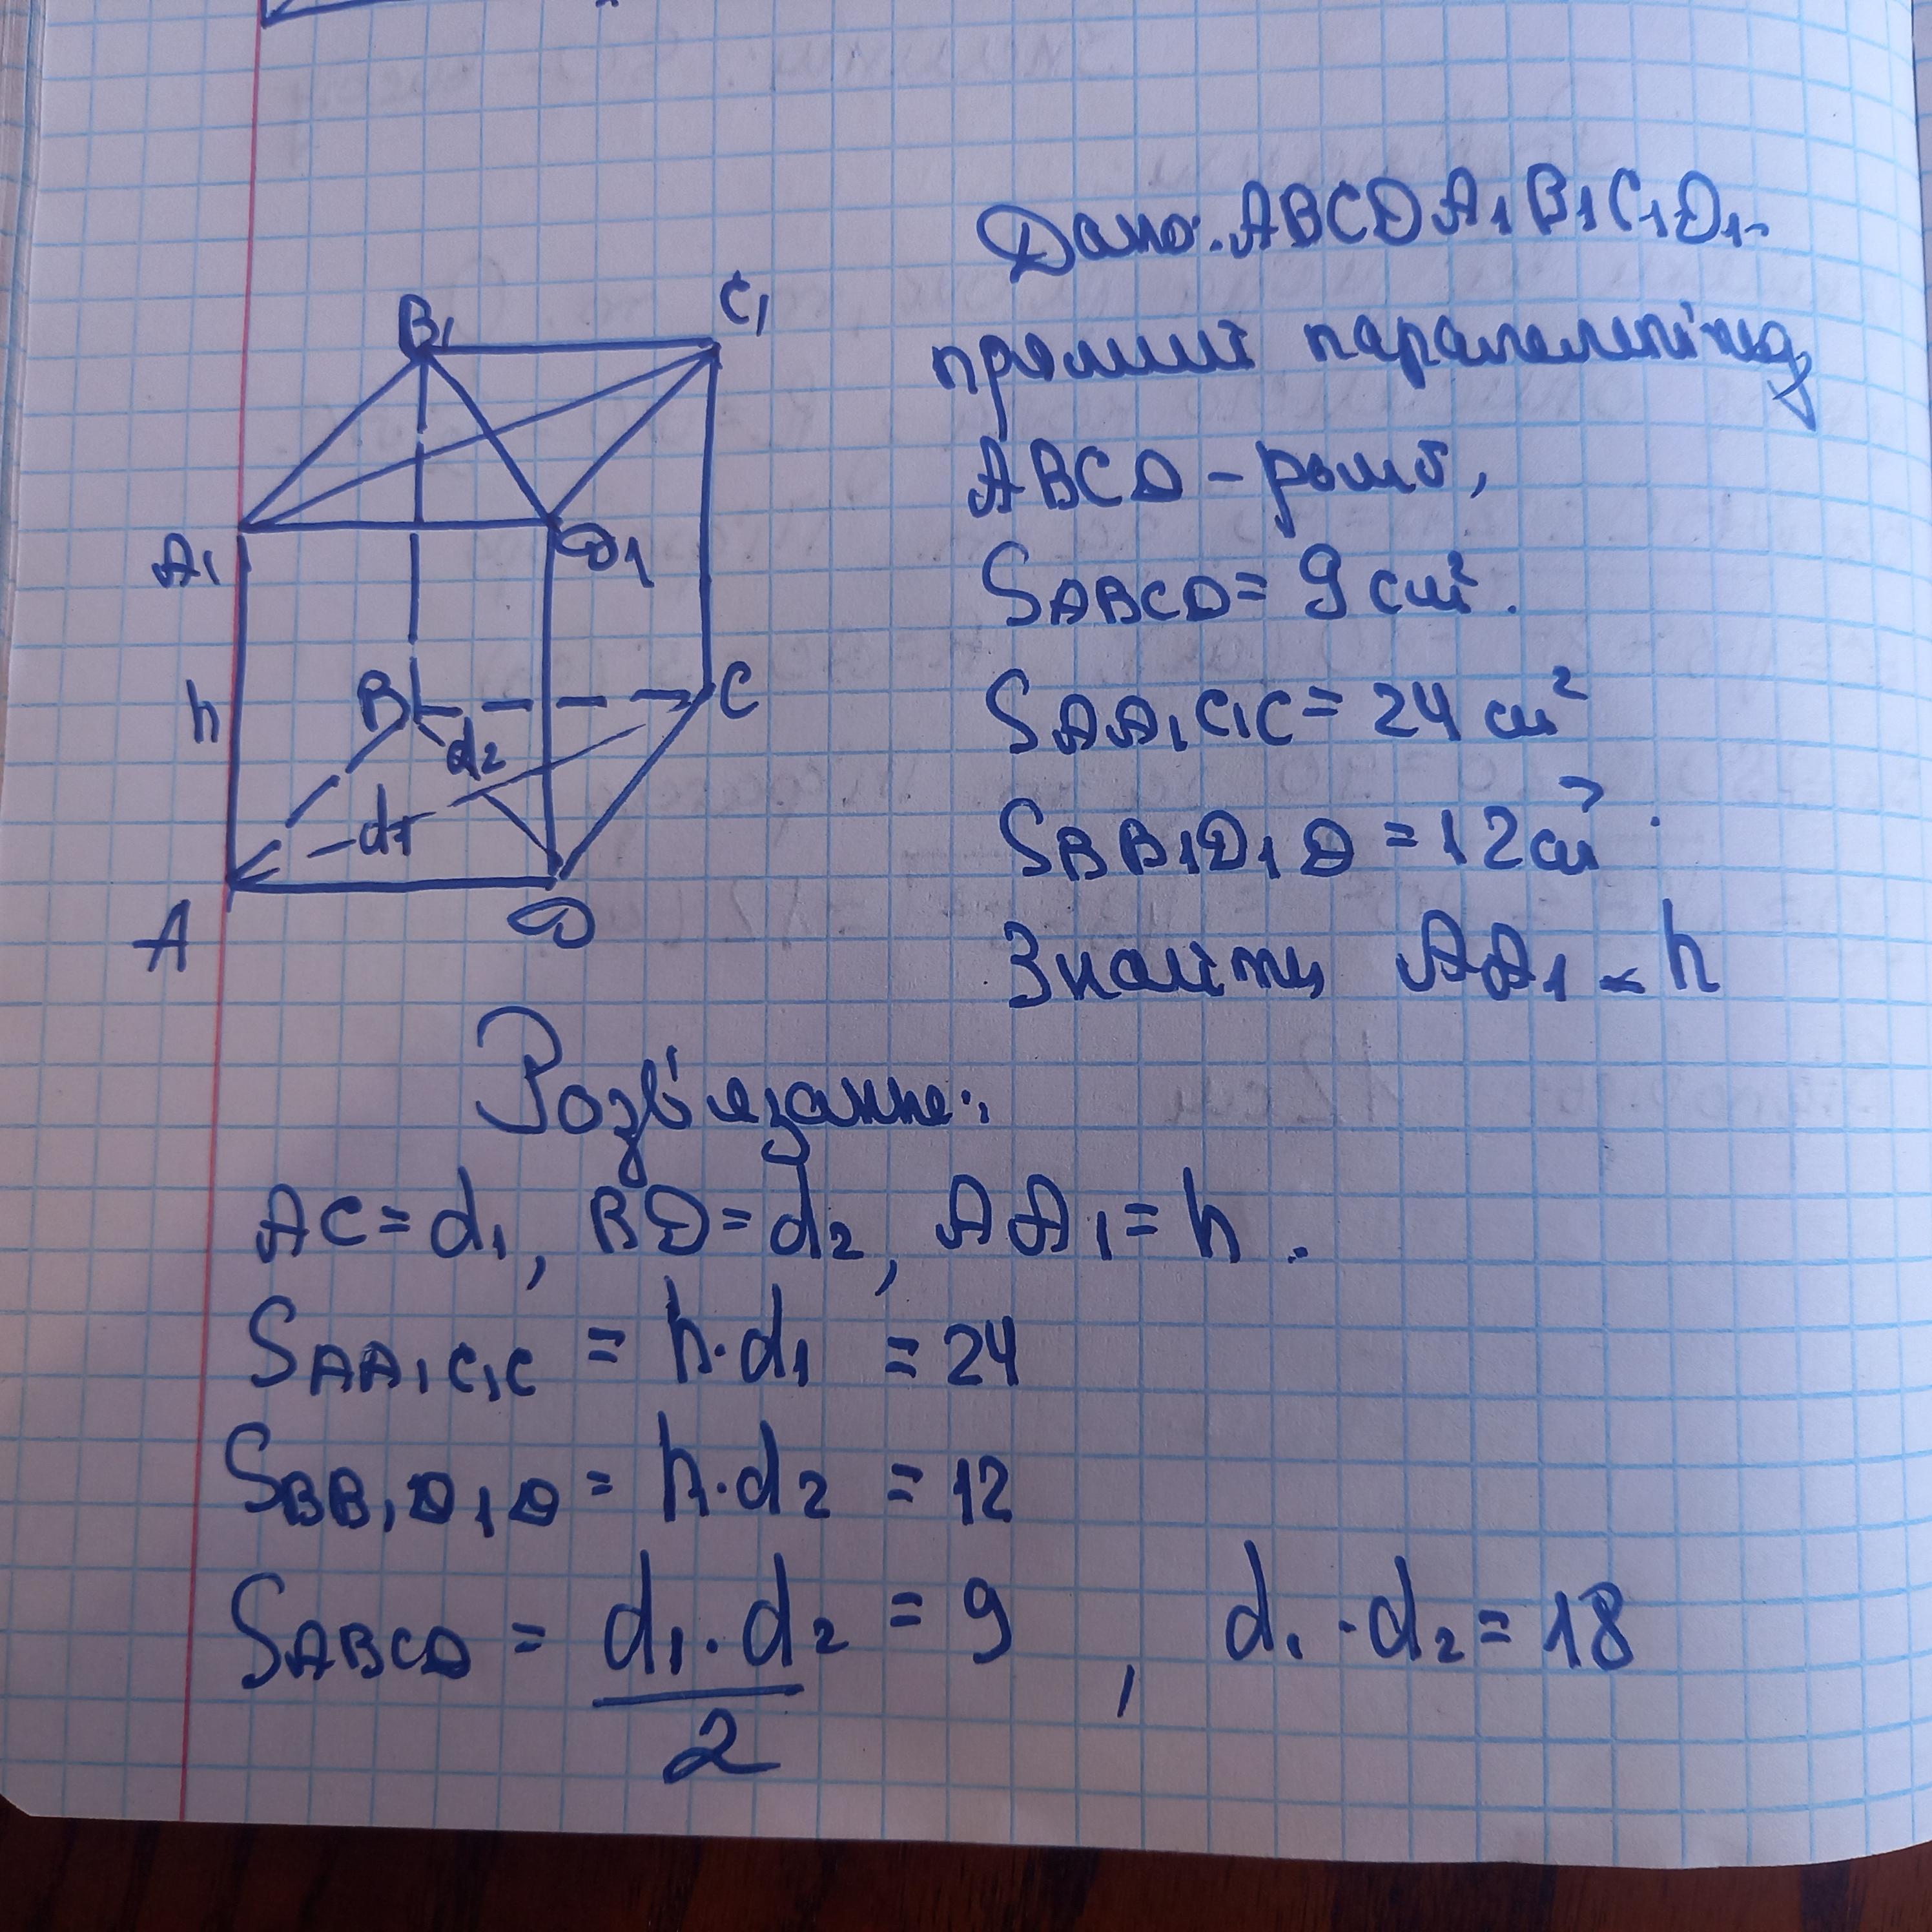 B₁
C₁
A₁
D₁
h
B
C
d₂
d₁
A
D
Дано: ABCDA₁B₁C₁D₁-
прямий паралелепіпед,
ABCD - ромб,
S ABCD = 9 см².
S AA₁C₁C = 24 см²
S BB₁D₁D = 12 см².
Знайти AA₁ - h
Розв'язання:
AC = d₁, BD = d₂, AA₁ = h.
S AA₁C₁C = h·d₁ = 24
S BB₁D₁D = h·d₂ = 12
S ABCD = d₁·d₂/2 = 9, d₁·d₂ = 18